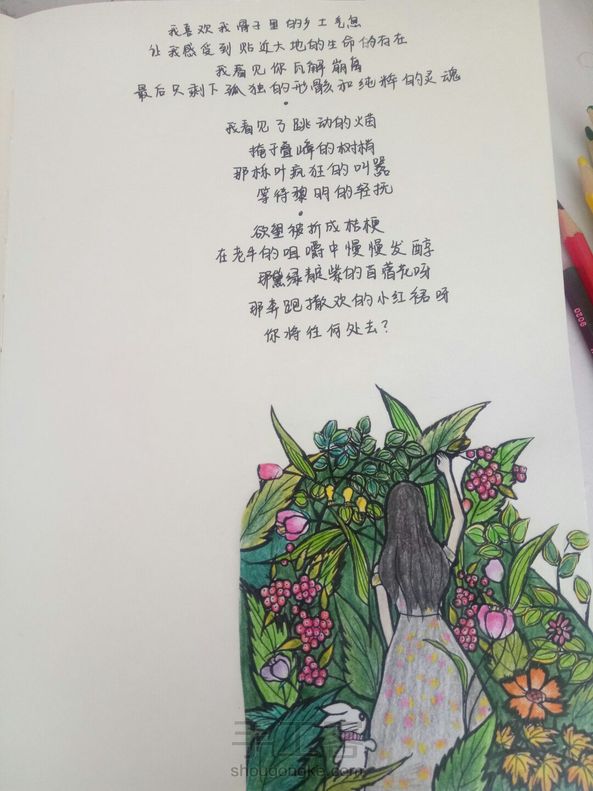 我喜欢我骨子里的乡土气息
让我感受到贴近大地的生命的存在
我看见你瓦解崩离
最后只剩下孤独的形骸和纯粹的灵魂
•
我看见了跳动的火苗
掩于叠峰的树梢
那栎叶疯狂的叫嚣
等待黎明的轻扰
•
欲望被折成桔梗
在老牛的咀嚼中慢慢发酵
那黛绿靛紫的苜蓿花呀
那奔跑撒欢的小红裙呀
你将往何处去？
0206
手工客
shougongke.com